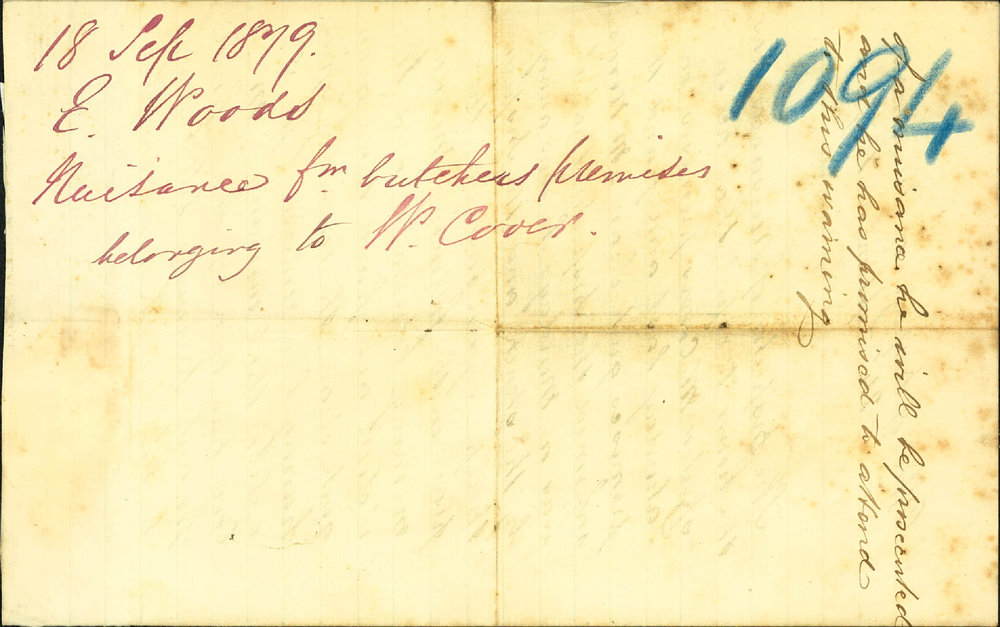 18 Sep 1879.
E. Woods
Nuisance fm butchers premises
belonging to W. Cover.
1094
of a nuisance he will be prosecuted
and he has promised to attend
to this warning